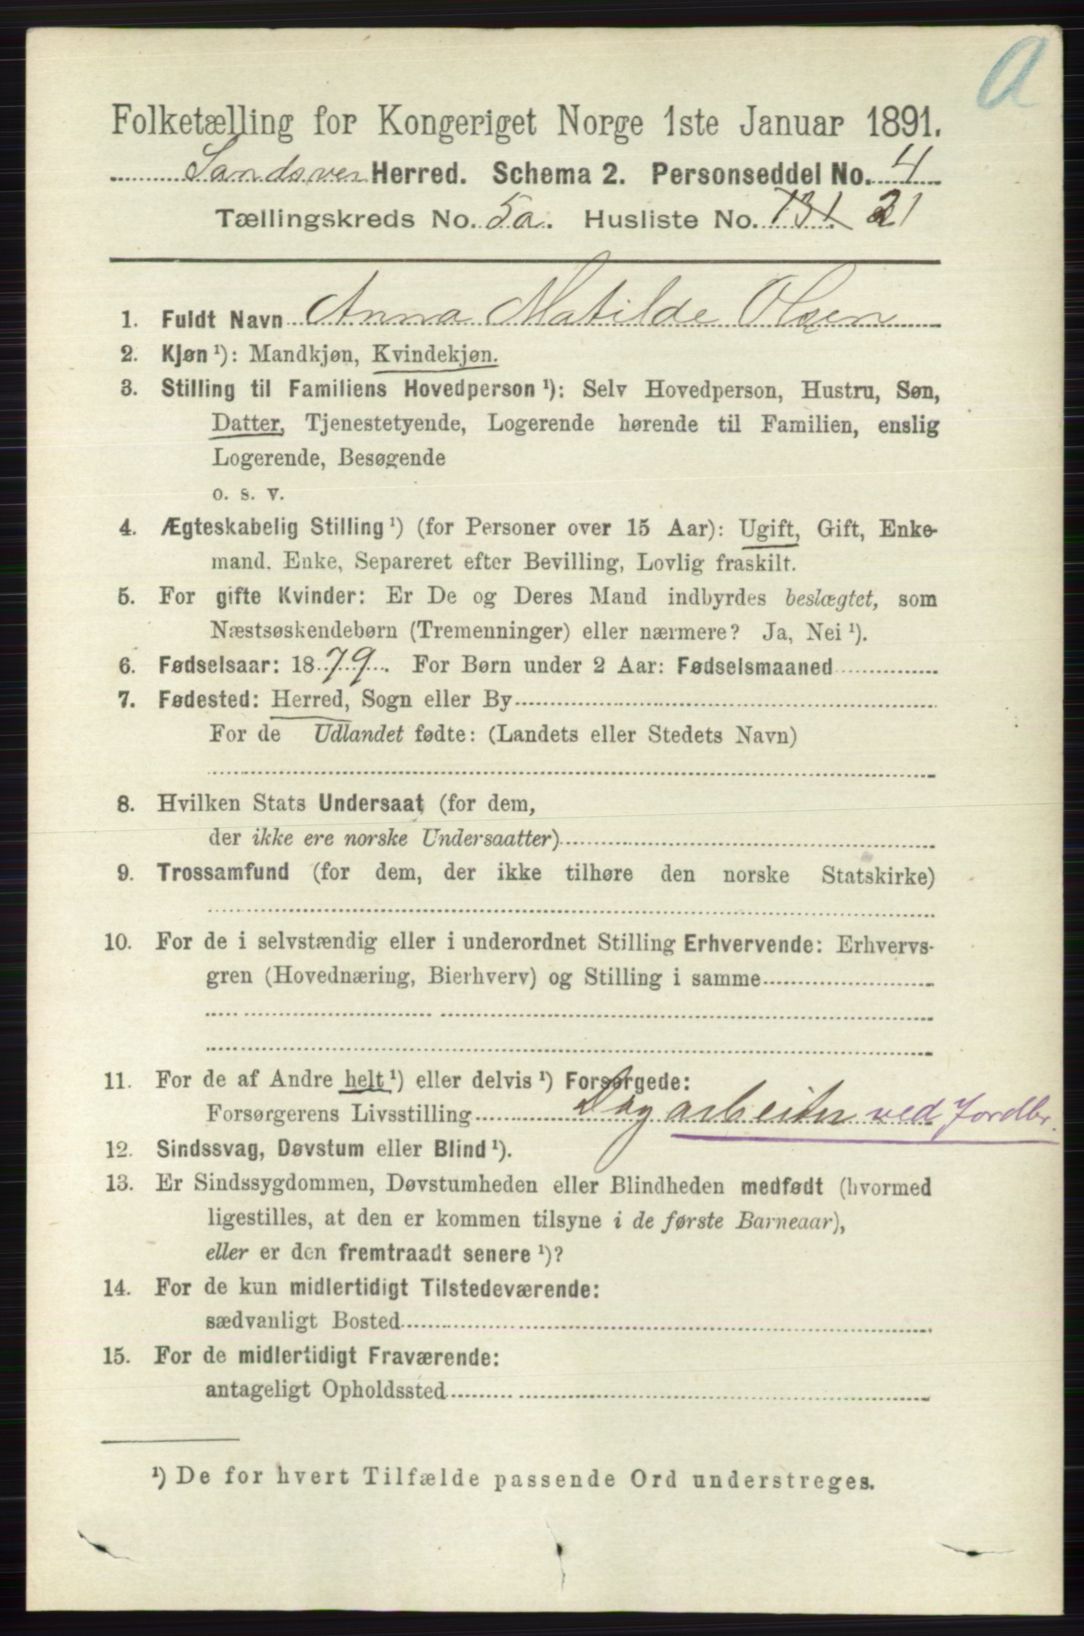 a
Folketælling for Kongeriget Norge 1ste Januar 1891.
Sandsver Herred. Schema 2. Personseddel No. 4
Tællingskreds No. 5a. Husliste No. 131. 21
1. Fuldt Navn Anna Matilde Olsen
2. Kjøn ¹): Mandkjøn, Kvindekjøn.
3. Stilling til Familiens Hovedperson ¹): Selv Hovedperson, Hustru, Søn,
Datter, Tjenestetyende, Logerende hørende til Familien, enslig
Logerende, Besøgende
o. s. v.
4. Ægteskabelig Stilling ¹) (for Personer over 15 Aar): Ugift, Gift, Enke-
mand. Enke, Separeret efter Bevilling, Lovlig fraskilt.
5. For gifte Kvinder: Er De og Deres Mand indbyrdes beslægtet, som
Næstsøskendebørn (Tremenninger) eller nærmere? Ja, Nei ¹).
6. Fødselsaar: 1879. For Børn under 2 Aar: Fødselsmaaned
7. Fødested: Herred, Sogn eller By
For de Udlandet fødte: (Landets eller Stedets Navn)
8. Hvilken Stats Undersaat (for dem,
der ikke ere norske Undersaatter)
9. Trossamfund (for dem, der ikke tilhøre den norske Statskirke)
10. For de i selvstændig eller i underordnet Stilling Erhvervende: Erhvervs-
gren (Hovednæring, Bierhverv) og Stilling i samme
11. For de af Andre helt ¹) eller delvis ¹) Forsørgede:
Forsørgerens Livsstilling Dagarbeider ved Jordbr.
12. Sindssvag, Døvstum eller Blind ¹).
13. Er Sindssygdommen, Døvstumheden eller Blindheden medfødt (hvormed
ligestilles, at den er kommen tilsyne i de første Barneaar),
eller er den fremtraadt senere ¹)?
14. For de kun midlertidigt Tilstedeværende:
sædvanligt Bosted
15. For de midlertidigt Fraværende:
antageligt Opholdssted
¹) De for hvert Tilfælde passende Ord understreges.